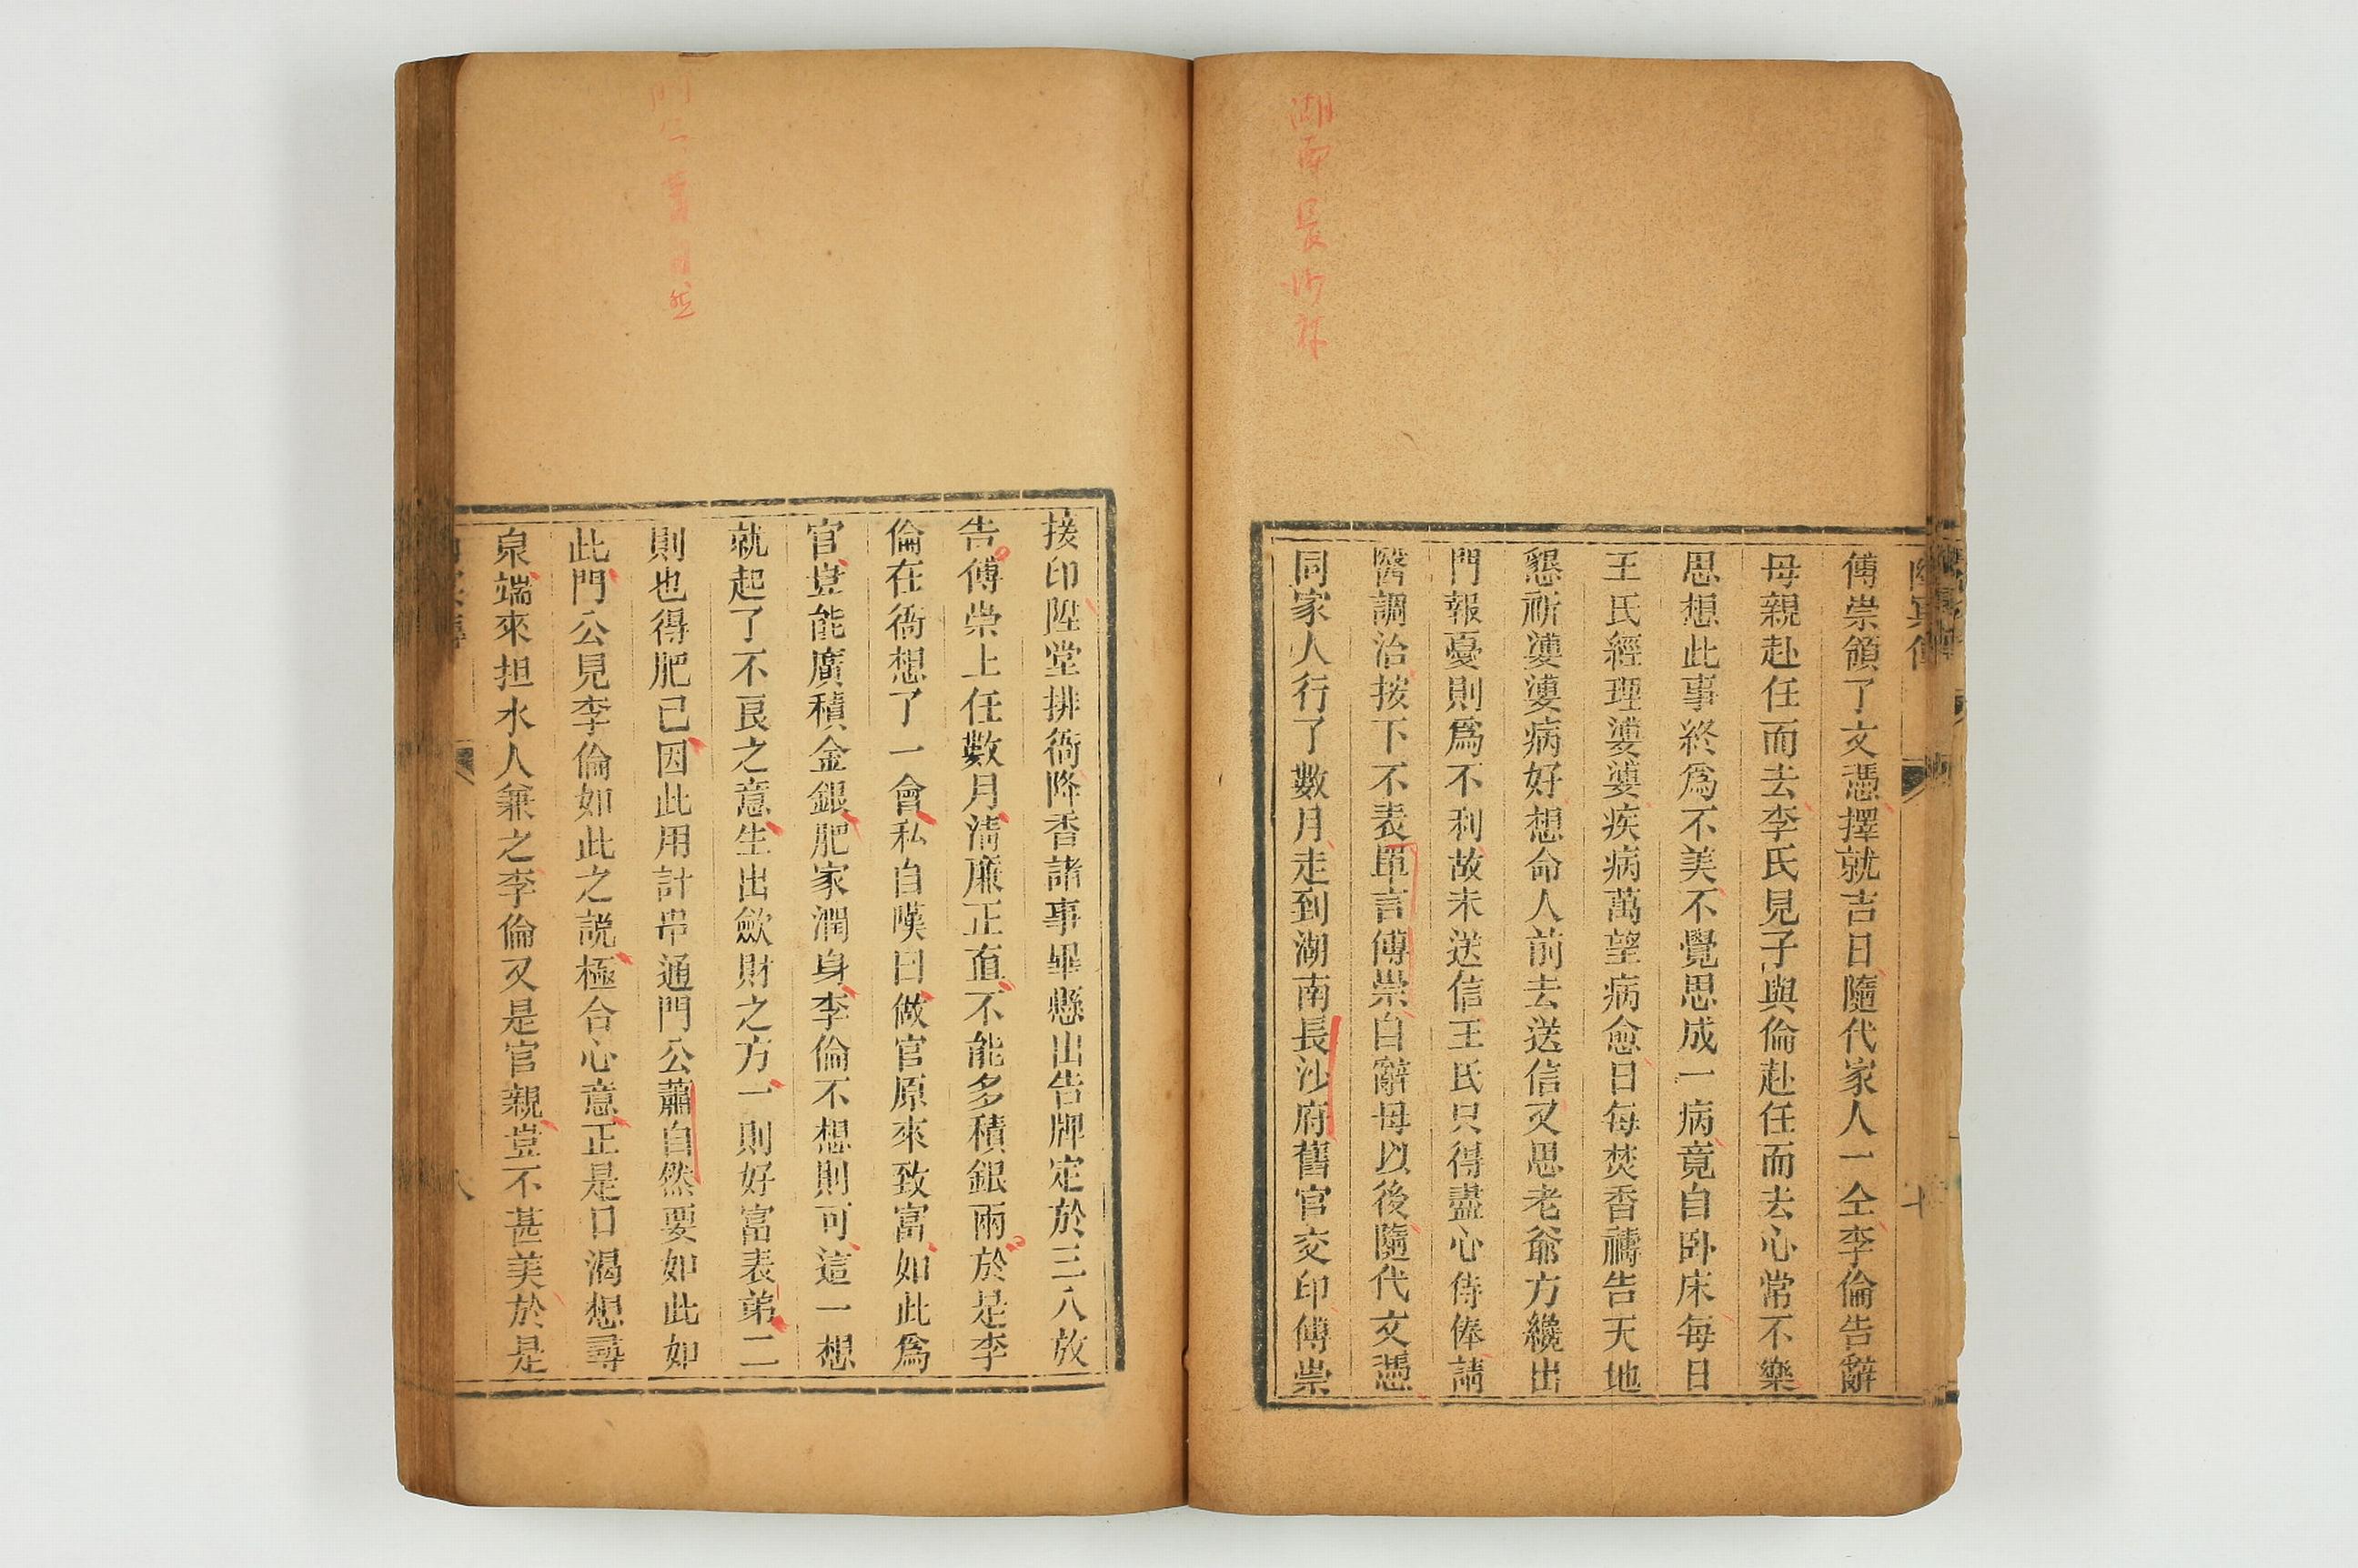 湖南長沙府
傅崇領了文憑擇就吉日隨代家人一仝李倫告辭
母親赴任而去李氏見子與倫赴任而去心常不樂
思想此事終爲不美不覺思成一病竟自卧床每日
王氏經理婆婆疾病萬望病愈日每焚香禱告天地
懇祈婆婆病好想命人前去送信又思老爺方纔出
門報憂則爲不利故未送信王氏只得盡心侍俸請
醫調治按下不表單言傅崇自辭母以後隨代文憑
同家人行了數月走到湖南長沙府舊官交印傅崇
接印陞堂排衙降香諸事畢懸出告牌定於三八放
告傅崇上任數月清廉正直不能多積銀兩於是李
倫在衙想了一會私自嘆曰做官原來致富如此爲
官豈能廣積金銀肥家潤身李倫不想則可這一想
就起了不良之意生出歛財之方一則好富表弟二
則也得肥己因此用計串通門公蕭自然要如此如
此門公見李倫如此之説極合心意正是口渴想尋
泉端來担水人兼之李倫又是官親豈不甚美於是